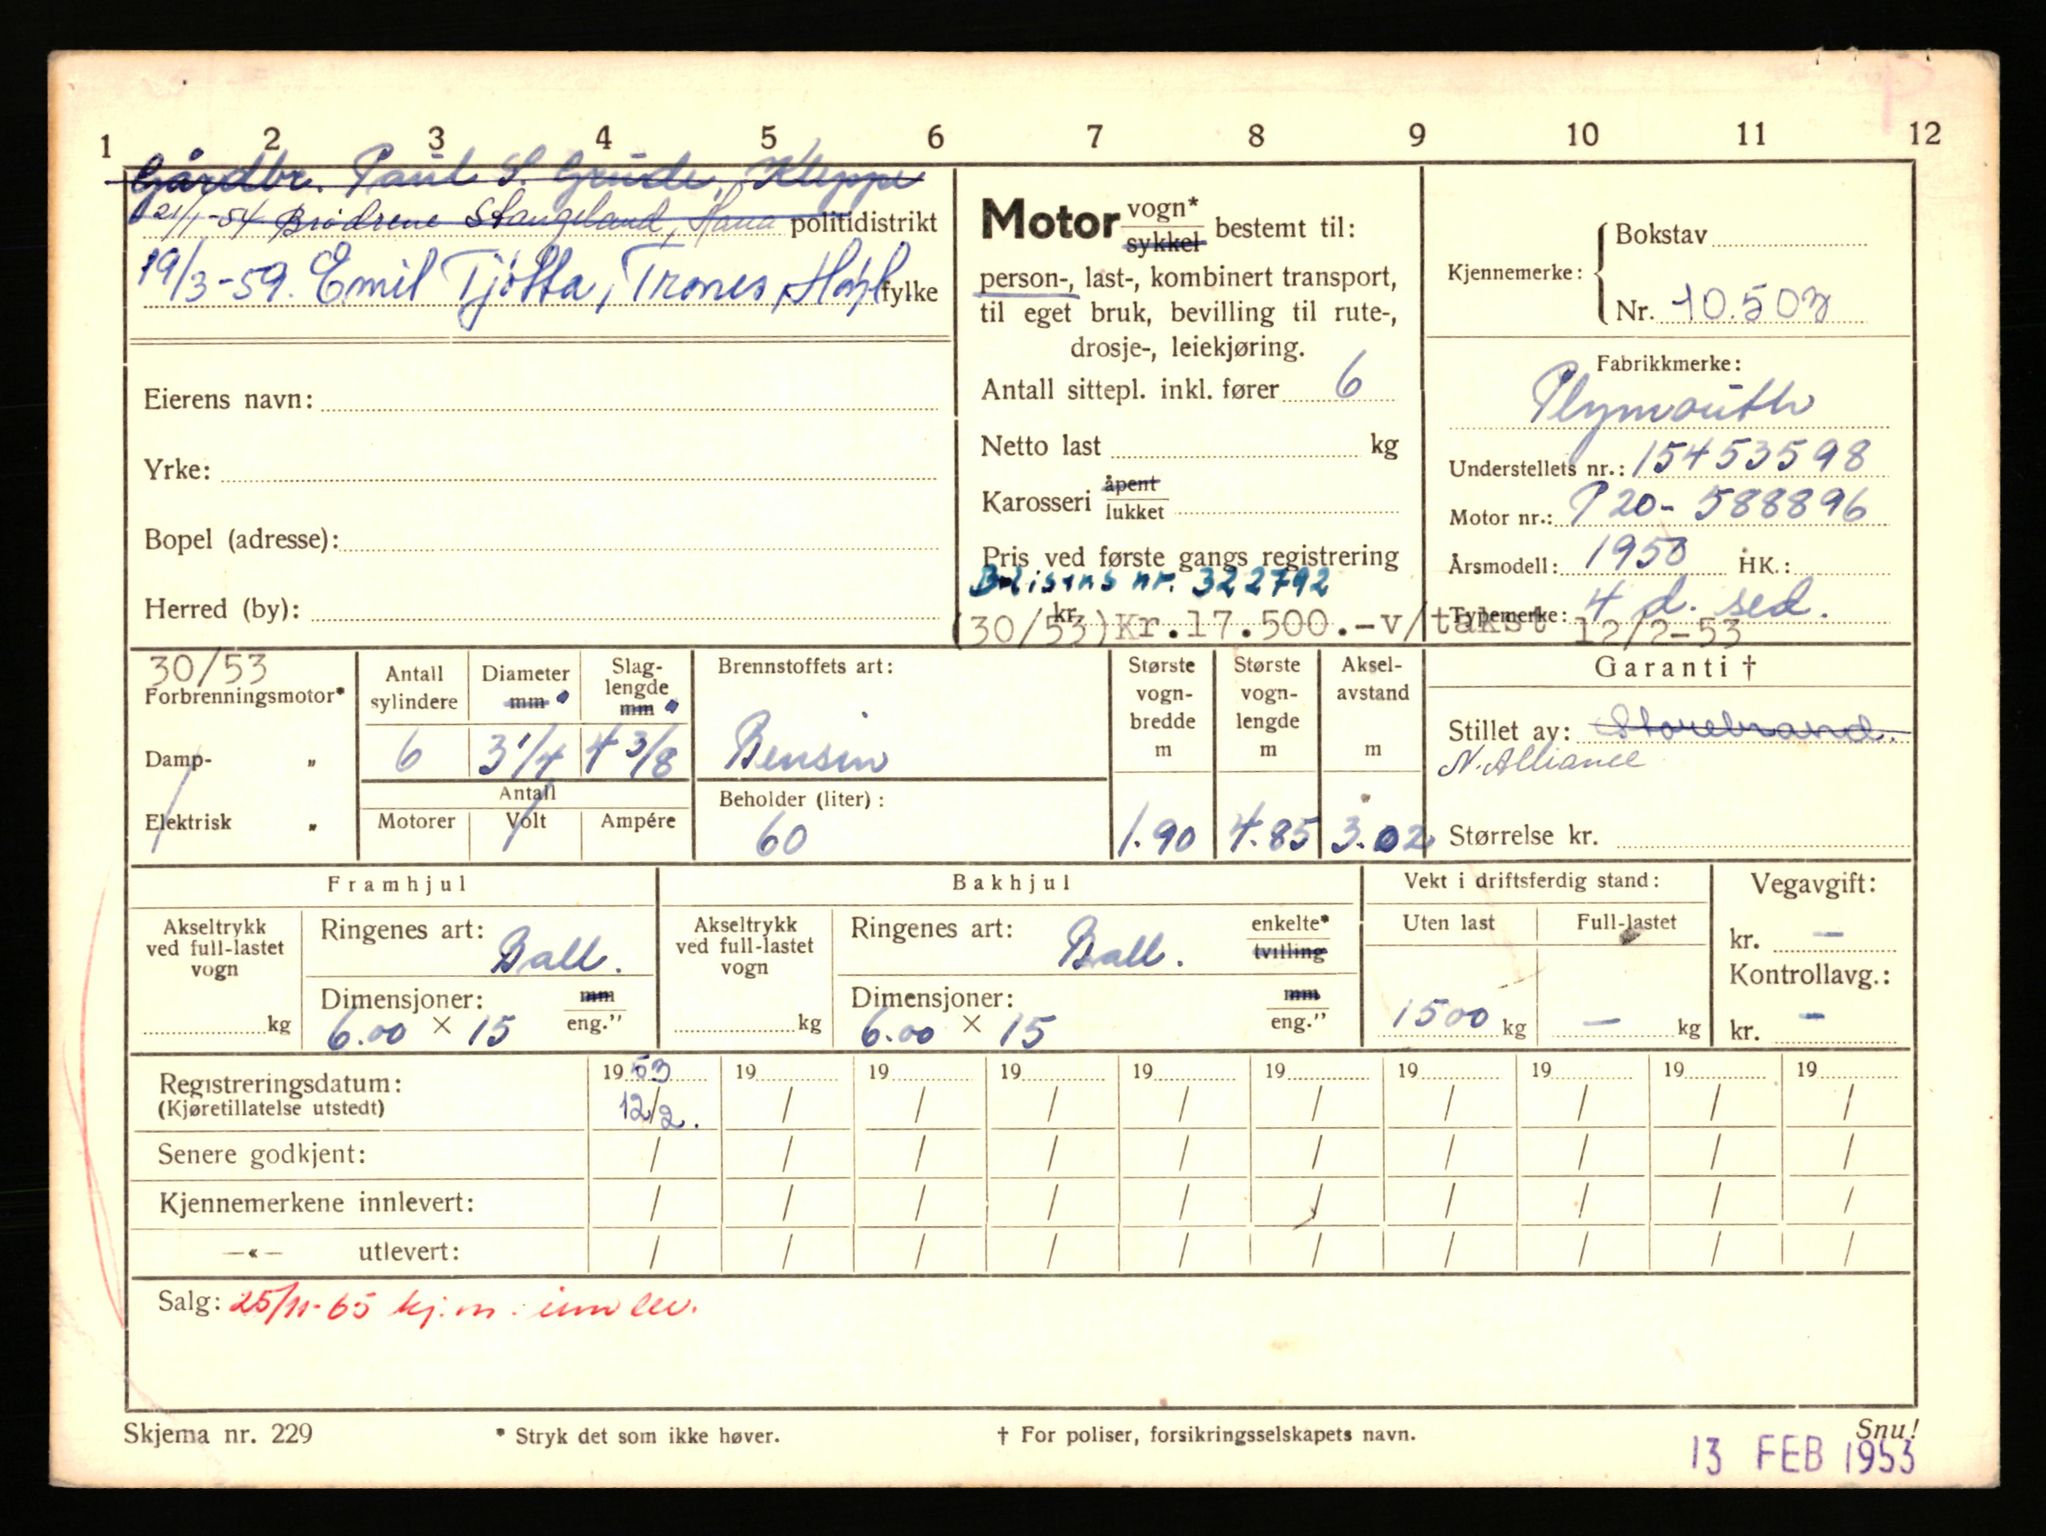 1 2 3 4 5 6 7 8 9 10 11 12
Gårdbr. Paul S. Grude, Kleppe
21/1-54 Brødrene Stangeland, Hana politidistrikt
19/3-59. Emil Tjøtta, Trones, Høyl fylke
Eierens navn:
Yrke:
Bopel (adresse):
Herred (by):
Motor vogn* sykkel bestemt til:
person-, last-, kombinert transport,
til eget bruk, bevilling til rute-,
drosje-, leiekjøring.
Antall sittepl. inkl. fører 6
Netto last kg
Karosseri åpent lukket
Pris ved første gangs registrering
nr. 322792
kr.
(30/53) Kr.17.500.-v/takst 12/2-53
Kjennemerke: Bokstav
Nr. 10.503
Fabrikkmerke:
Plymouth
Understellets nr.: 15453598
Motor nr.: P20-588896
Årsmodell: 1950 HK.:
Typemerke: 4 d. sed.
30/53
Forbrenningsmotor*
Damp- "
Elektrisk "
Antall sylindere
6
Diameter mm
3 1/4
Slag-lengde mm
4 3/8
Antall
Motorer Volt Ampére
Brennstoffets art:
Bensin
Beholder (liter):
60
Største vogn-bredde m
1.90
Største vogn-lengde m
4.85
Aksel-avstand m
3.02
Garanti †
Stillet av: Storebrand.
N. Alliance
Størrelse kr.
Framhjul
Akseltrykk ved full-lastet vogn
kg
Ringenes art: Ball.
Dimensjoner: mm eng."
6.00 × 15
Bakhjul
Akseltrykk ved full-lastet vogn
kg
Ringenes art: Ball. enkelte* tvilling
Dimensjoner: mm eng."
6.00 × 15
Vekt i driftsferdig stand:
Uten last Full-lastet
1500 kg — kg
Vegavgift:
kr. —
Kontrollavg.:
kr. —
Registreringsdatum: 19 53 19 19 19 19 19 19 19 19 19
(Kjøretillatelse utstedt) 12/2. / / / / / / / / /
Senere godkjent: / / / / / / / / / /
Kjennemerkene innlevert: / / / / / / / / / /
—«— utlevert: / / / / / / / / / /
Salg: 25/11-65 kj.m. innlev.
Skjema nr. 229 * Stryk det som ikke høver. † For poliser, forsikringsselskapets navn. Snu!
13 FEB 1953